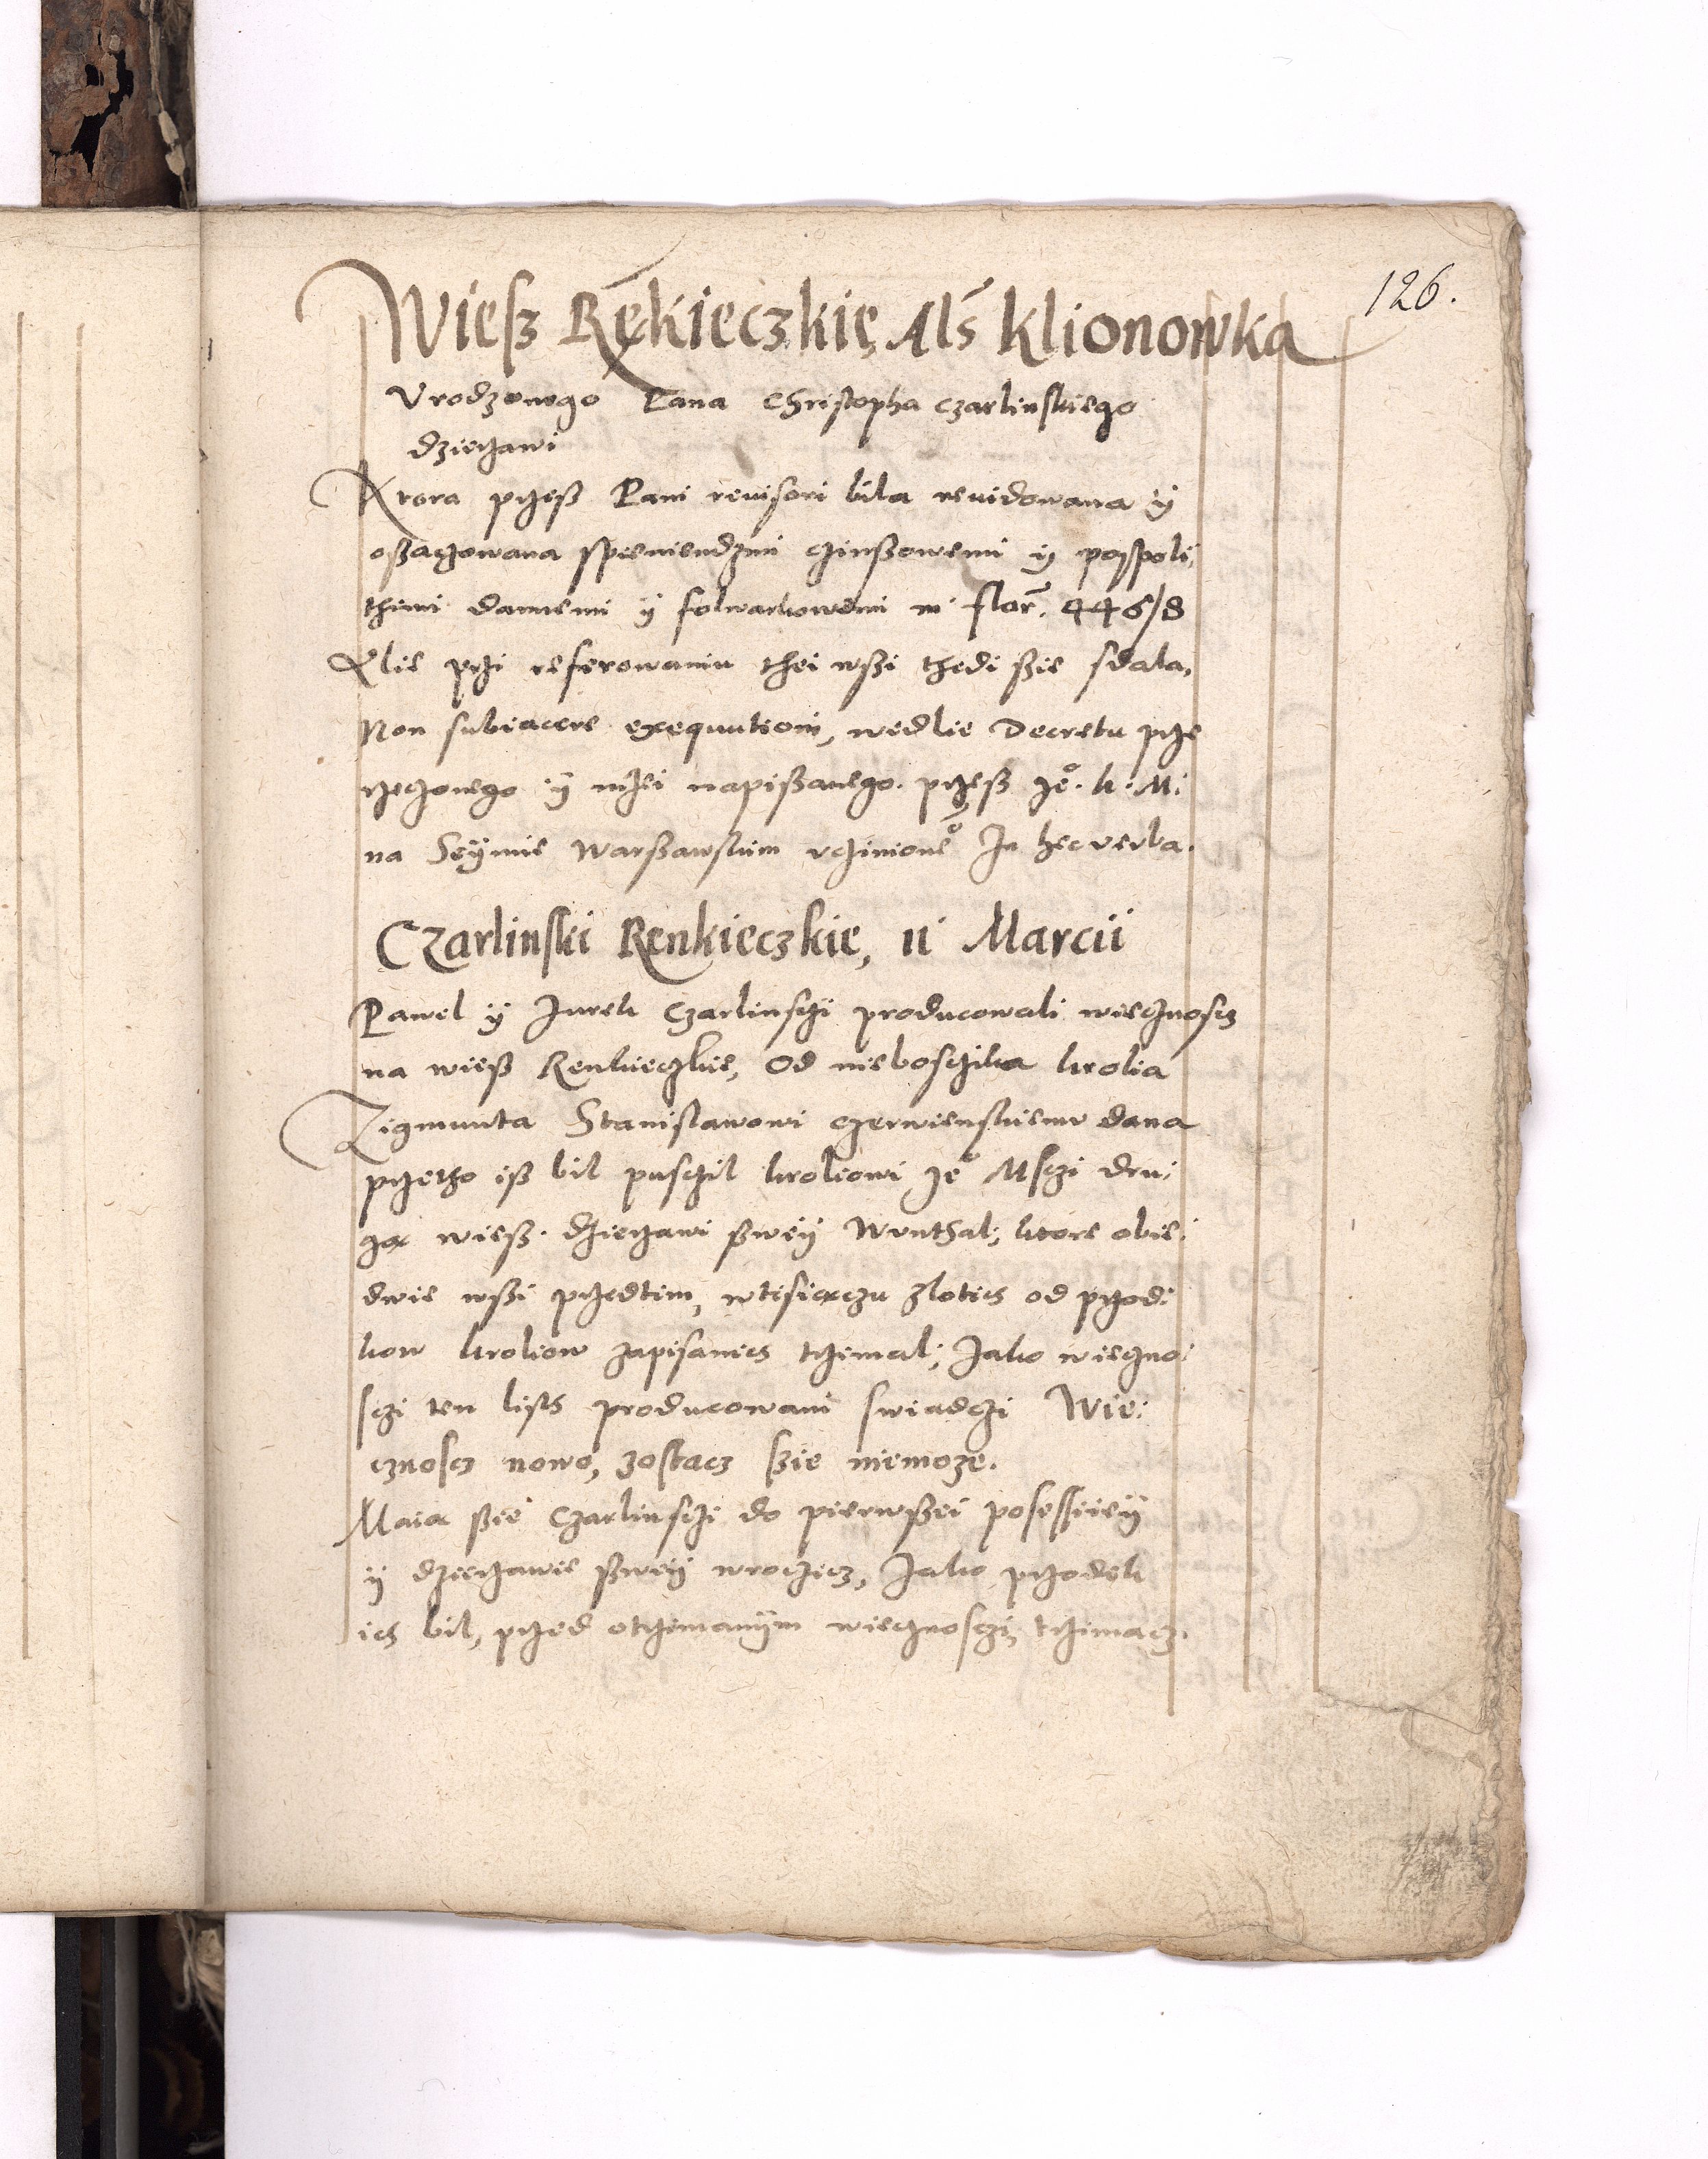 126.
Wiesz Rękieczkie Als Klionowka
Vrodzonego Pana Christopha Czarlinskiego
dzierzawi
Ktora przesz Pani reuisori bila reuidowana ÿ
oszaczowana spieniendzmi czinszowemi ÿ pospoli:
thimi daniemi ÿ folwarkowemi in flor. 446/8
Alie przi referowaniu thei wszi thedi szie sdala,
Non subiacere exequutioni, wedlie Decretu prze
rzeczonego ÿ nizei napiszanego. przesz Je°. k. M:
na Seÿmie Warszawskim vczinione° In hec verba.
Czarlinski Renkieczkie, 11 Marcii
Pawel ÿ Jurek Czarlinsczi producowali wiecznoscz
na wiesz Renkieczkie, Od niebosczika krolia
Zigmunta Stanislawowi Czerwienskiemu dana
przetho isz bil pusczil kroliowi Je° Msczi dru:
ga wiesz dzierzawi szweÿ Wvnthal; ktore obie:
dwie wszi przedtim, wtisiaczu zlotich od przod:
kow kroliow zapisanich trzimal; Jako wieczno:
sczi ten listh producowani swiadczi Wie:
cznoscz nowo, zostacz szie niemoze.
Maia szie Czarlinsczi do pierwszei posessiieÿ
ÿ dzierzawie szweÿ wroczicz, Jako przodek
ich bil, przed otrzimanÿm wiecznosczi, trzimacz.